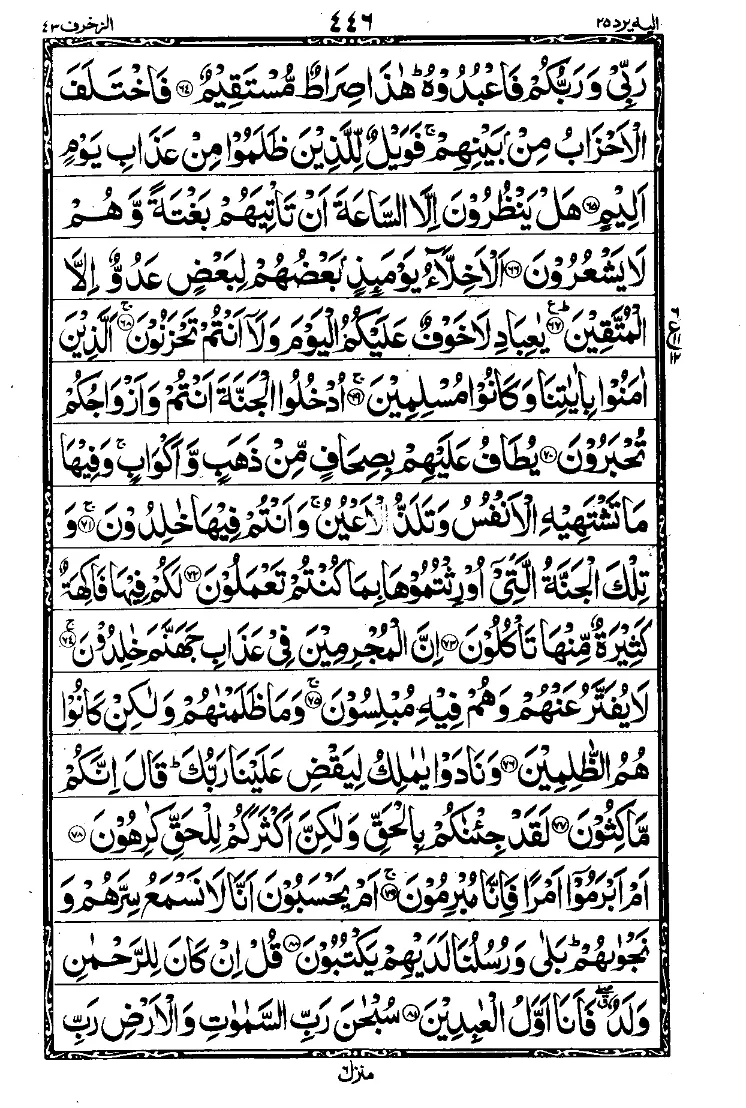 اليه يرد ٢٥ ٤٤٦ الزخرف ٤٣
رَبِّیْ وَرَبُّكُمْ فَاعْبُدُوْهُ ؕ هٰذَا صِرَاطٌ مُّسْتَقِیْمٌ ﴿۶۴﴾ فَاخْتَلَفَ
الْاَحْزَابُ مِنْۢ بَیْنِهِمْ ۚ فَوَیْلٌ لِّلَّذِیْنَ ظَلَمُوْا مِنْ عَذَابِ یَوْمٍ
اَلِیْمٍ ﴿۶۵﴾ هَلْ یَنْظُرُوْنَ اِلَّا السَّاعَةَ اَنْ تَاْتِیَهُمْ بَغْتَةً وَّهُمْ
لَا یَشْعُرُوْنَ ﴿۶۶﴾ اَلْاَخِلَّآءُ یَوْمَىِٕذٍۭ بَعْضُهُمْ لِبَعْضٍ عَدُوٌّ اِلَّا
الْمُتَّقِیْنَ ﴿۶۷﴾ؕ۠ یٰعِبَادِ لَا خَوْفٌ عَلَیْكُمُ الْیَوْمَ وَلَاۤ اَنْتُمْ تَحْزَنُوْنَ ﴿۶۸﴾ۚ اَلَّذِیْنَ
اٰمَنُوْا بِاٰیٰتِنَا وَكَانُوْا مُسْلِمِیْنَ ﴿۶۹﴾ۚ اُدْخُلُوا الْجَنَّةَ اَنْتُمْ وَاَزْوَاجُكُمْ
تُحْبَرُوْنَ ﴿۷۰﴾ یُطَافُ عَلَیْهِمْ بِصِحَافٍ مِّنْ ذَهَبٍ وَّاَكْوَابٍ ۚ وَفِیْهَا
مَا تَشْتَهِیْهِ الْاَنْفُسُ وَتَلَذُّ الْاَعْیُنُ ۚ وَاَنْتُمْ فِیْهَا خٰلِدُوْنَ ﴿۷۱﴾ۚ وَ
تِلْكَ الْجَنَّةُ الَّتِیْۤ اُوْرِثْتُمُوْهَا بِمَا كُنْتُمْ تَعْمَلُوْنَ ﴿۷۲﴾ لَكُمْ فِیْهَا فَاكِهَةٌ
كَثِیْرَةٌ مِّنْهَا تَاْكُلُوْنَ ﴿۷۳﴾ اِنَّ الْمُجْرِمِیْنَ فِیْ عَذَابِ جَهَنَّمَ خٰلِدُوْنَ ﴿۷۴﴾ۚ
لَا یُفَتَّرُ عَنْهُمْ وَهُمْ فِیْهِ مُبْلِسُوْنَ ﴿۷۵﴾ۚ وَمَا ظَلَمْنٰهُمْ وَلٰكِنْ كَانُوْا
هُمُ الظّٰلِمِیْنَ ﴿۷۶﴾ وَنَادَوْا یٰمٰلِكُ لِیَقْضِ عَلَیْنَا رَبُّكَ ؕ قَالَ اِنَّكُمْ
مّٰكِثُوْنَ ﴿۷۷﴾ لَقَدْ جِئْنٰكُمْ بِالْحَقِّ وَلٰكِنَّ اَكْثَرَكُمْ لِلْحَقِّ كٰرِهُوْنَ ﴿۷۸﴾
اَمْ اَبْرَمُوْۤا اَمْرًا فَاِنَّا مُبْرِمُوْنَ ﴿۷۹﴾ۚ اَمْ یَحْسَبُوْنَ اَنَّا لَا نَسْمَعُ سِرَّهُمْ وَ
نَجْوٰىهُمْ ؕ بَلٰی وَرُسُلُنَا لَدَیْهِمْ یَكْتُبُوْنَ ﴿۸۰﴾ قُلْ اِنْ كَانَ لِلرَّحْمٰنِ
وَلَدٌ ۖۗ فَاَنَا اَوَّلُ الْعٰبِدِیْنَ ﴿۸۱﴾ سُبْحٰنَ رَبِّ السَّمٰوٰتِ وَالْاَرْضِ رَبِّ
منزل ٦